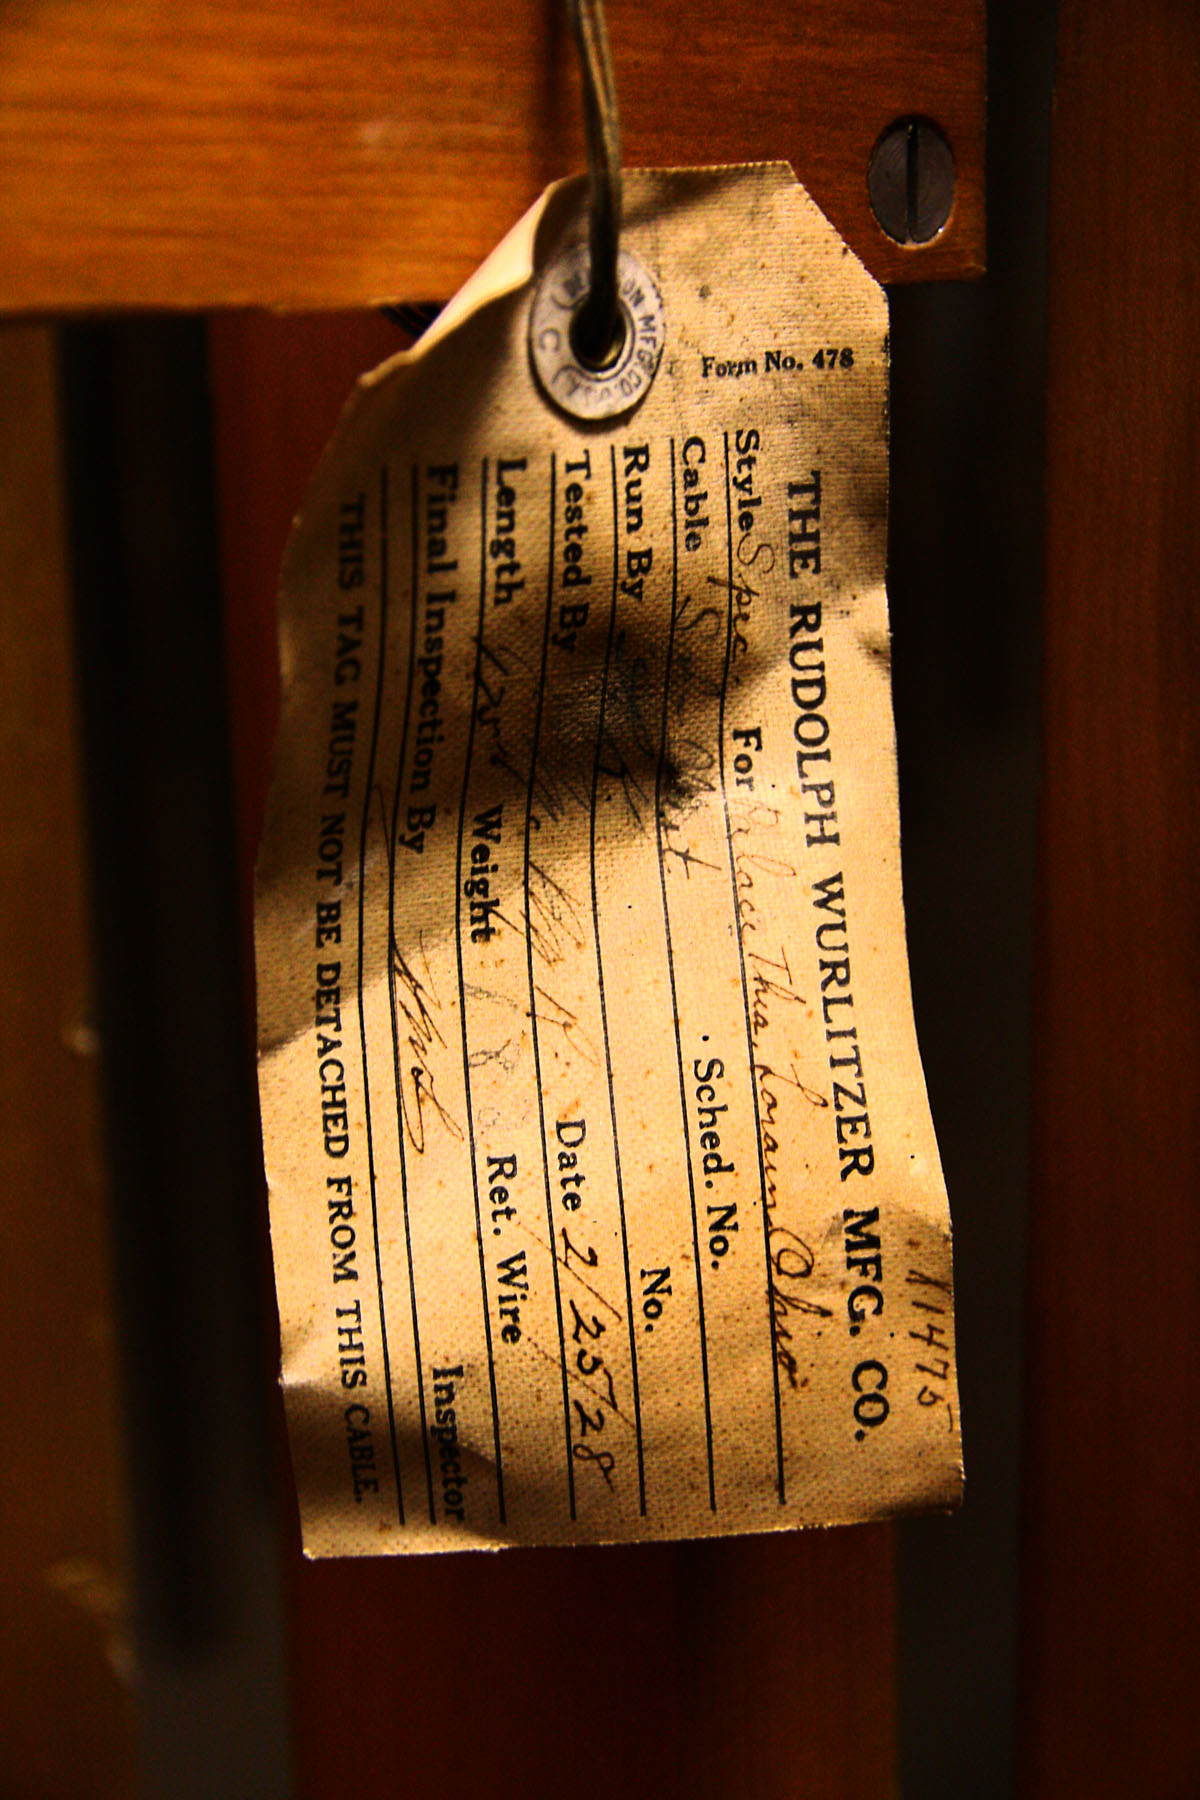 Form No. 478
11475
THE RUDOLPH WURLITZER MFG. CO.
Style Spec. For Palace Thea. Lorain Ohio
Cable Sched. No.
Run By No.
Tested By Date 2/25/28
Length Weight Ret. Wire
Final Inspection By Inspector
THIS TAG MUST NOT BE DETACHED FROM THIS CABLE.
MFG. CO.